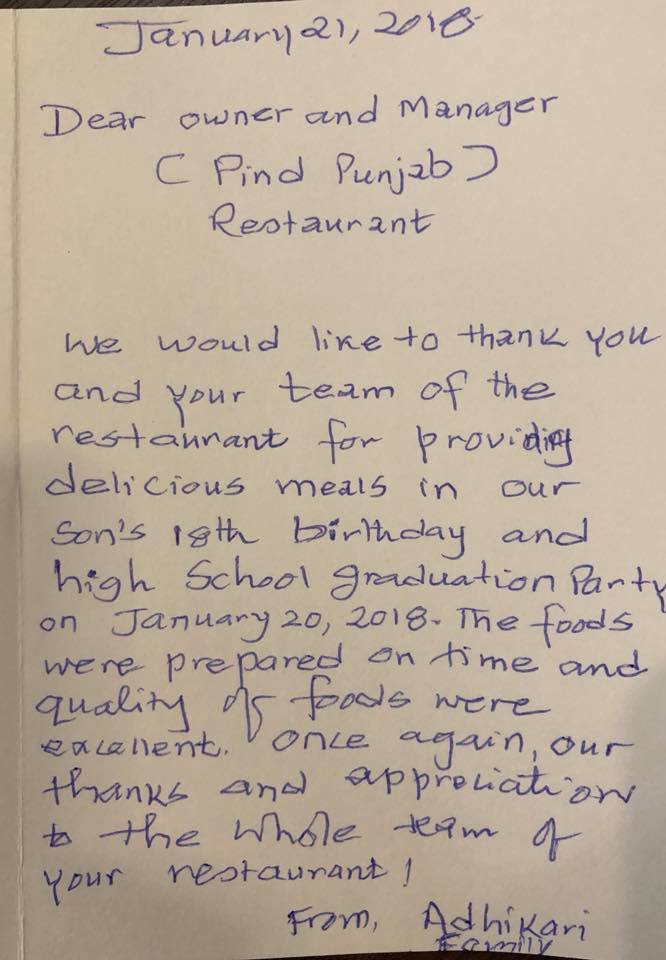 January 21, 2018
Dear owner and Manager
( Pind Punjab )
Restaurant
We would like to thank you
and your team of the
restaurant for providing
delicious meals in our
Son's 18th birthday and
high School graduation Party
on January 20, 2018. The foods
were prepared on time and
quality of foods were
excellent. once again, our
thanks and appreciation
to the whole team of
your restaurant!
From, Adhikari
Family